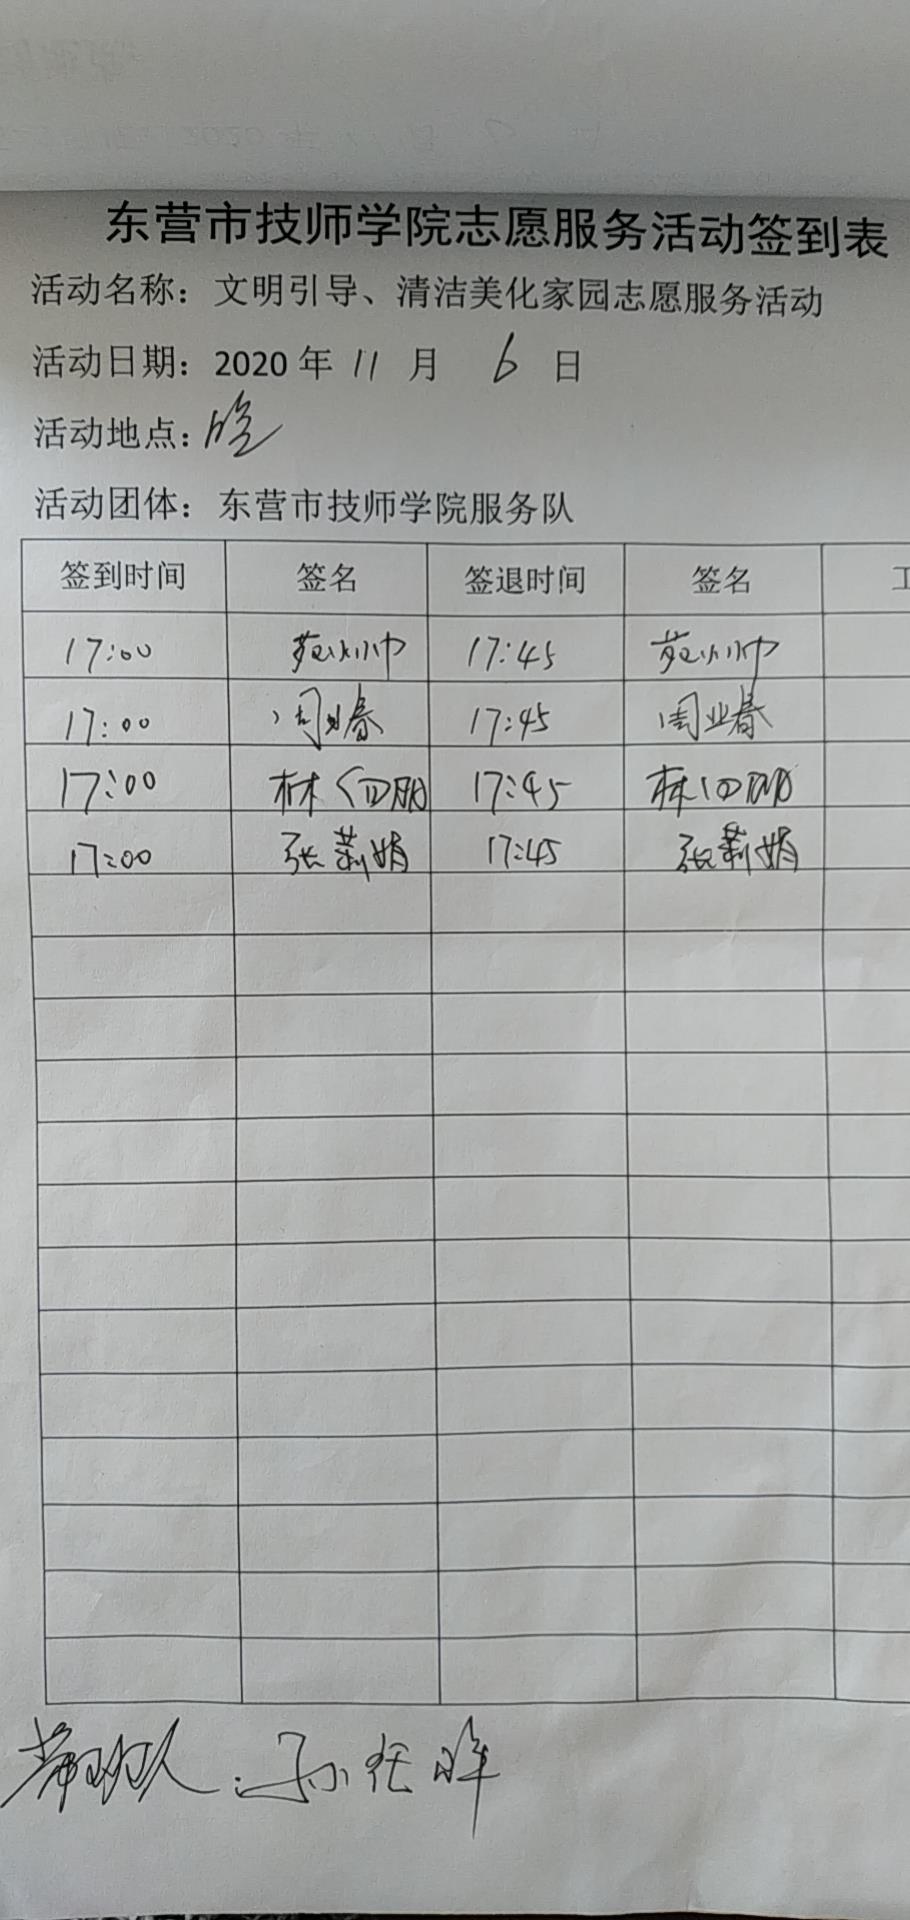 东营市技师学院志愿服务活动签到表
活动名称：文明引导、清洁美化家园志愿服务活动
活动日期：2020 年 11 月 6 日
活动地点：
活动团体：东营市技师学院服务队
签到时间 签名 签退时间 签名 工
17:00 17:45
17:00 周业春 17:45 周业春
17:00 17:45
17:00 张莉娟 17:45 张莉娟
带班人：孙